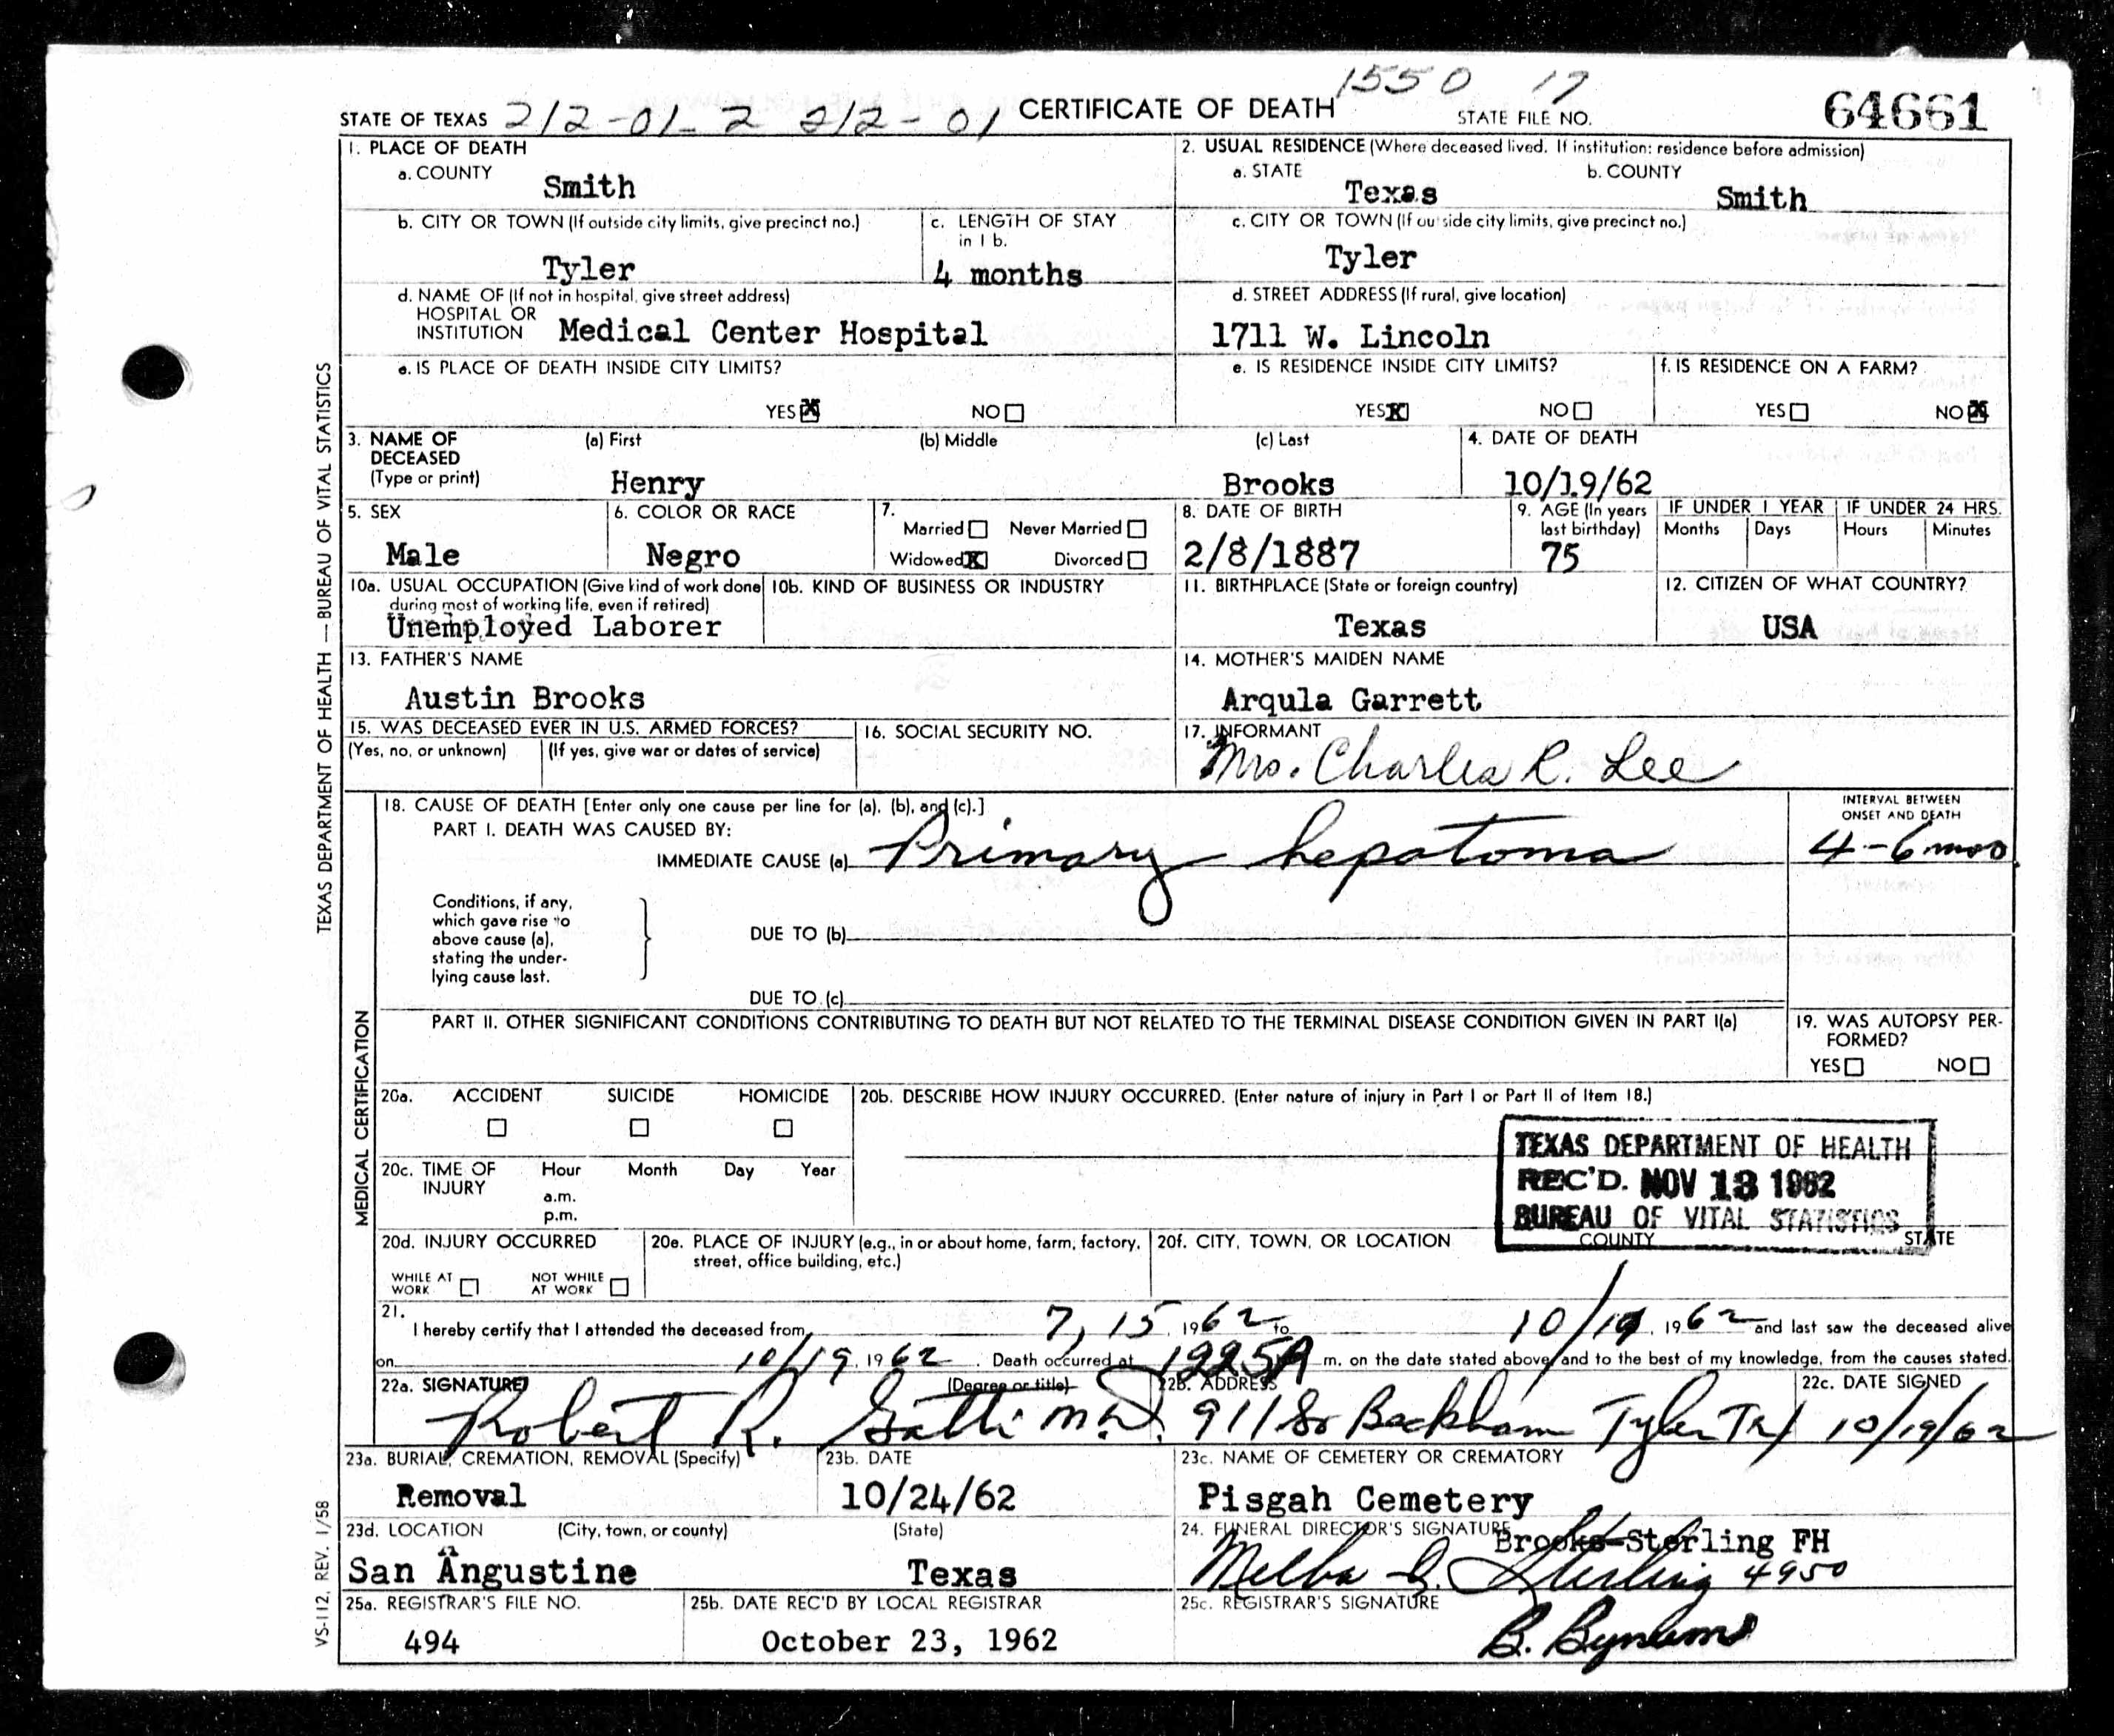 1550 17
STATE OF TEXAS 212-01-2 212-01 CERTIFICATE OF DEATH STATE FILE NO. 64661
1. PLACE OF DEATH
a. COUNTY Smith
2. USUAL RESIDENCE (Where deceased lived. If institution: residence before admission)
a. STATE Texas b. COUNTY Smith
b. CITY OR TOWN (If outside city limits, give precinct no.) Tyler
c. LENGTH OF STAY in 1 b. 4 months
c. CITY OR TOWN (If outside city limits, give precinct no.)
Tyler
d. NAME OF (If not in hospital, give street address)
HOSPITAL OR
INSTITUTION Medical Center Hospital
d. STREET ADDRESS (If rural, give location)
1711 W. Lincoln
e. IS PLACE OF DEATH INSIDE CITY LIMITS?
YES X NO
e. IS RESIDENCE INSIDE CITY LIMITS?
YES X NO
f. IS RESIDENCE ON A FARM?
YES NO X
3. NAME OF DECEASED (Type or print)
(a) First (b) Middle (c) Last
Henry Brooks
4. DATE OF DEATH
10/19/62
5. SEX
Male
6. COLOR OR RACE
Negro
7.
Married Never Married
Widowed X Divorced
8. DATE OF BIRTH
2/8/1887
9. AGE (In years last birthday)
75
IF UNDER 1 YEAR
Months Days
IF UNDER 24 HRS.
Hours Minutes
10a. USUAL OCCUPATION (Give kind of work done
during most of working life, even if retired)
Unemployed Laborer
10b. KIND OF BUSINESS OR INDUSTRY
11. BIRTHPLACE (State or foreign country)
Texas
12. CITIZEN OF WHAT COUNTRY?
USA
13. FATHER'S NAME
Austin Brooks
14. MOTHER'S MAIDEN NAME
Arqula Garrett
15. WAS DECEASED EVER IN U.S. ARMED FORCES?
(Yes, no, or unknown) (If yes, give war or dates of service)
16. SOCIAL SECURITY NO.
17. INFORMANT
Mrs. Charles R. Lee
18. CAUSE OF DEATH [Enter only one cause per line for (a), (b), and (c).]
PART I. DEATH WAS CAUSED BY:
IMMEDIATE CAUSE (a) Primary hepatoma
INTERVAL BETWEEN
ONSET AND DEATH
4-6 mos
Conditions, if any,
which gave rise to
above cause (a),
stating the under-
lying cause last.
DUE TO (b)
DUE TO (c)
PART II. OTHER SIGNIFICANT CONDITIONS CONTRIBUTING TO DEATH BUT NOT RELATED TO THE TERMINAL DISEASE CONDITION GIVEN IN PART I(a)
19. WAS AUTOPSY PER-
FORMED?
YES NO
20a. ACCIDENT SUICIDE HOMICIDE
20b. DESCRIBE HOW INJURY OCCURRED. (Enter nature of injury in Part I or Part II of Item 18.)
TEXAS DEPARTMENT OF HEALTH
REC'D. NOV 13 1962
BUREAU OF VITAL STATISTICS
20c. TIME OF INJURY
Hour Month Day Year
a.m.
p.m.
20d. INJURY OCCURRED
WHILE AT WORK NOT WHILE AT WORK
20e. PLACE OF INJURY (e.g., in or about home, farm, factory,
street, office building, etc.)
20f. CITY, TOWN, OR LOCATION COUNTY STATE
21.
I hereby certify that I attended the deceased from 7, 15, 1962 to 10/19, 1962 and last saw the deceased alive
on 10/19, 1962. Death occurred at 1225A m. on the date stated above, and to the best of my knowledge, from the causes stated.
22a. SIGNATURE (Degree or title)
Robert R. Gatti M.D.
22b. ADDRESS
911 So Beckham Tyler Tx
22c. DATE SIGNED
10/19/62
23a. BURIAL, CREMATION, REMOVAL (Specify)
Removal
23b. DATE
10/24/62
23c. NAME OF CEMETERY OR CREMATORY
Pisgah Cemetery
23d. LOCATION (City, town, or county) (State)
San Angustine Texas
24. FUNERAL DIRECTOR'S SIGNATURE Brooks-Sterling FH
Melba Sterling 4950
25a. REGISTRAR'S FILE NO.
494
25b. DATE REC'D BY LOCAL REGISTRAR
October 23, 1962
25c. REGISTRAR'S SIGNATURE
B. Bynum
TEXAS DEPARTMENT OF HEALTH — BUREAU OF VITAL STATISTICS
MEDICAL CERTIFICATION
VS-112, REV. 1/58